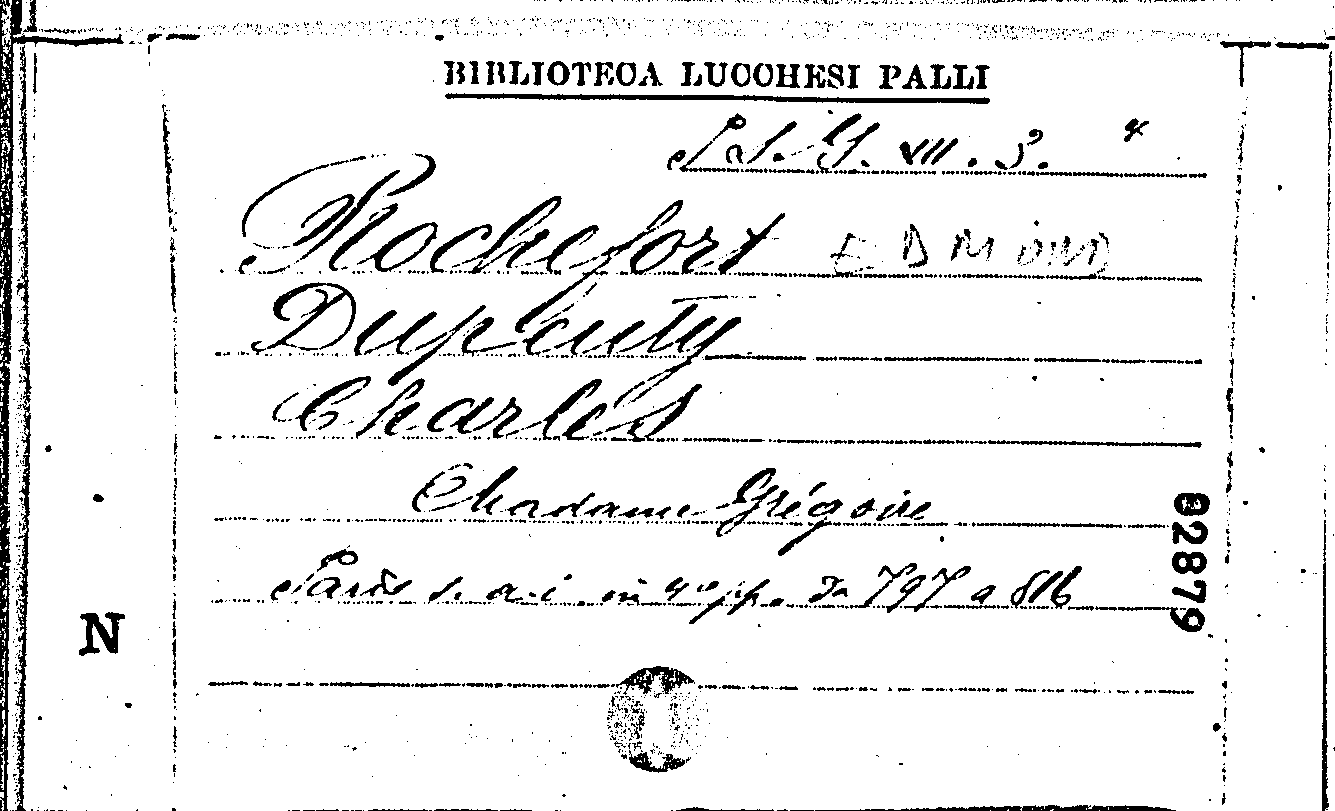 BIBLIOTECA LUCCHESI PALLI
VII. 3.
Rochefort EDMOND
Dupeuty
Charles
Madame Grégoire
Paris s. a. i. in 4° pp. da 797 a 816
82879
N